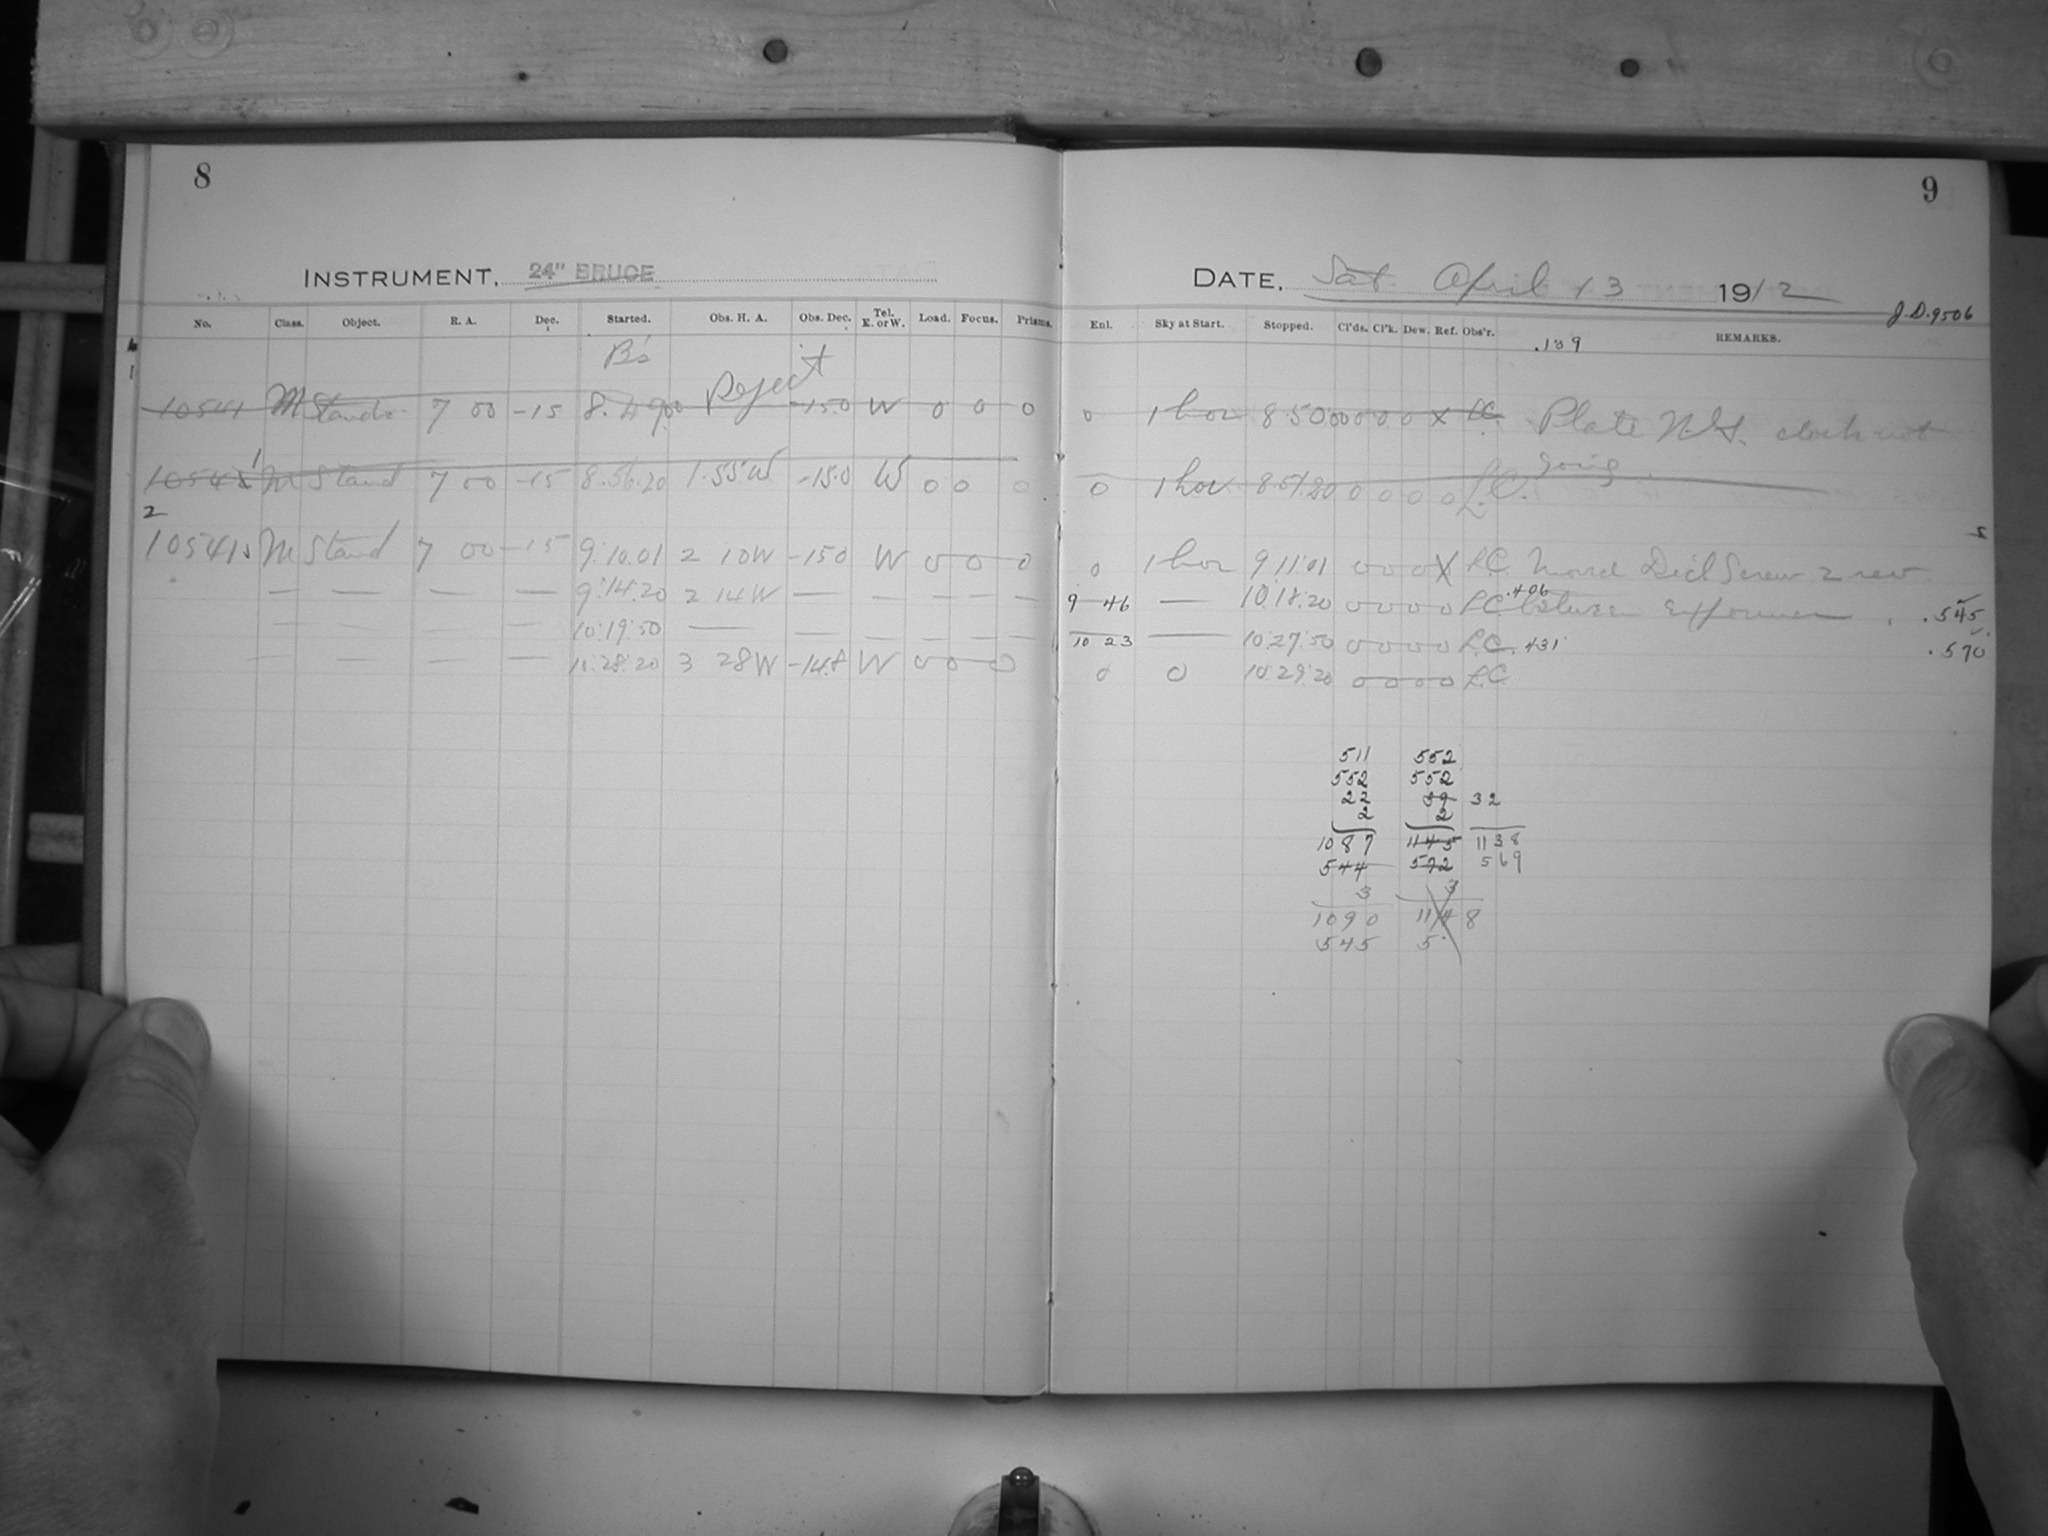 8
INSTRUMENT. 24" BRUCE
No. Class. Object. R. A. Dec. Started. Obs. H. A. Obs. Dec. Tel. E. or W. Load. Focus. Prisms.
B's
Reject
10541 M Stands 7 00 -15 8.49.00 -15.0 W 0 0 0
1
M Stand 7 00 -15 8.56.20 1.55W -15.0 W 0 0 0
2
10541 M Stand 7 00 -15 9.10.01 2 10W -150 W 0 0 0
— — — — 9.14.20 2 14W — — — — —
— — — — 10.19.50 — — — — — —
— — — — 28.20 3 28W -14.8 W 0 0 0
9
DATE. Sat. April 13 1912
J.D. 9506
Enl. Sky at Start. Stopped. Cl'ds. Cl'k. Dew. Ref. Obs'r. REMARKS.
.139
0 1 hor 8 50 00 0 0 0 X LC. Plate N.G. clock not
going
0 1 hor 20 0 0 0 0 L.C.
0 1 hor 9 11.01 0 0 0 X L.C. Moved Decl Screw 2 rev
9 46 — 10.18.20 0 0 0 0 L.C. .406 between Exposures .545
10 23 — 10.27.50 0 0 0 0 L.C. .431 .570
0 0 10.29.20 0 0 0 0 L.C.
511 552
552 552
22 39 32
2 2
1087 1145 1138
544 572 569
3 3
1090 1148
545 5